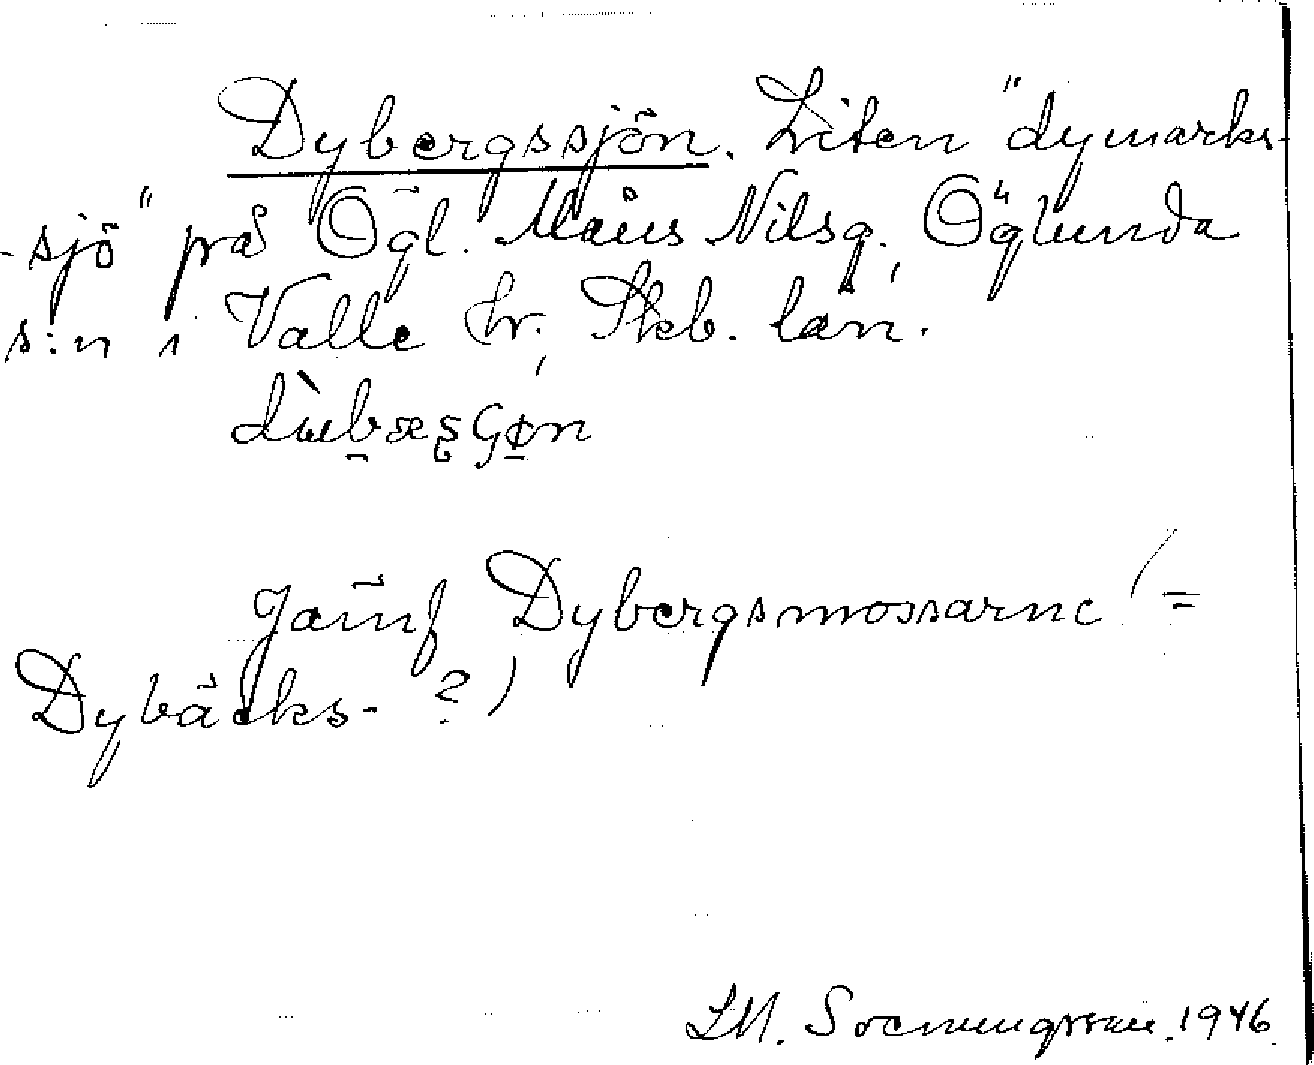 Dybergssjön. Liten "dymarks-
-sjö" på Ögl. Måns Nilsg., Öglunda
s:n i Valle hr, Skb. län.
Jämf Dybergsmossarne (=
Dybäcks- ?)
1946.